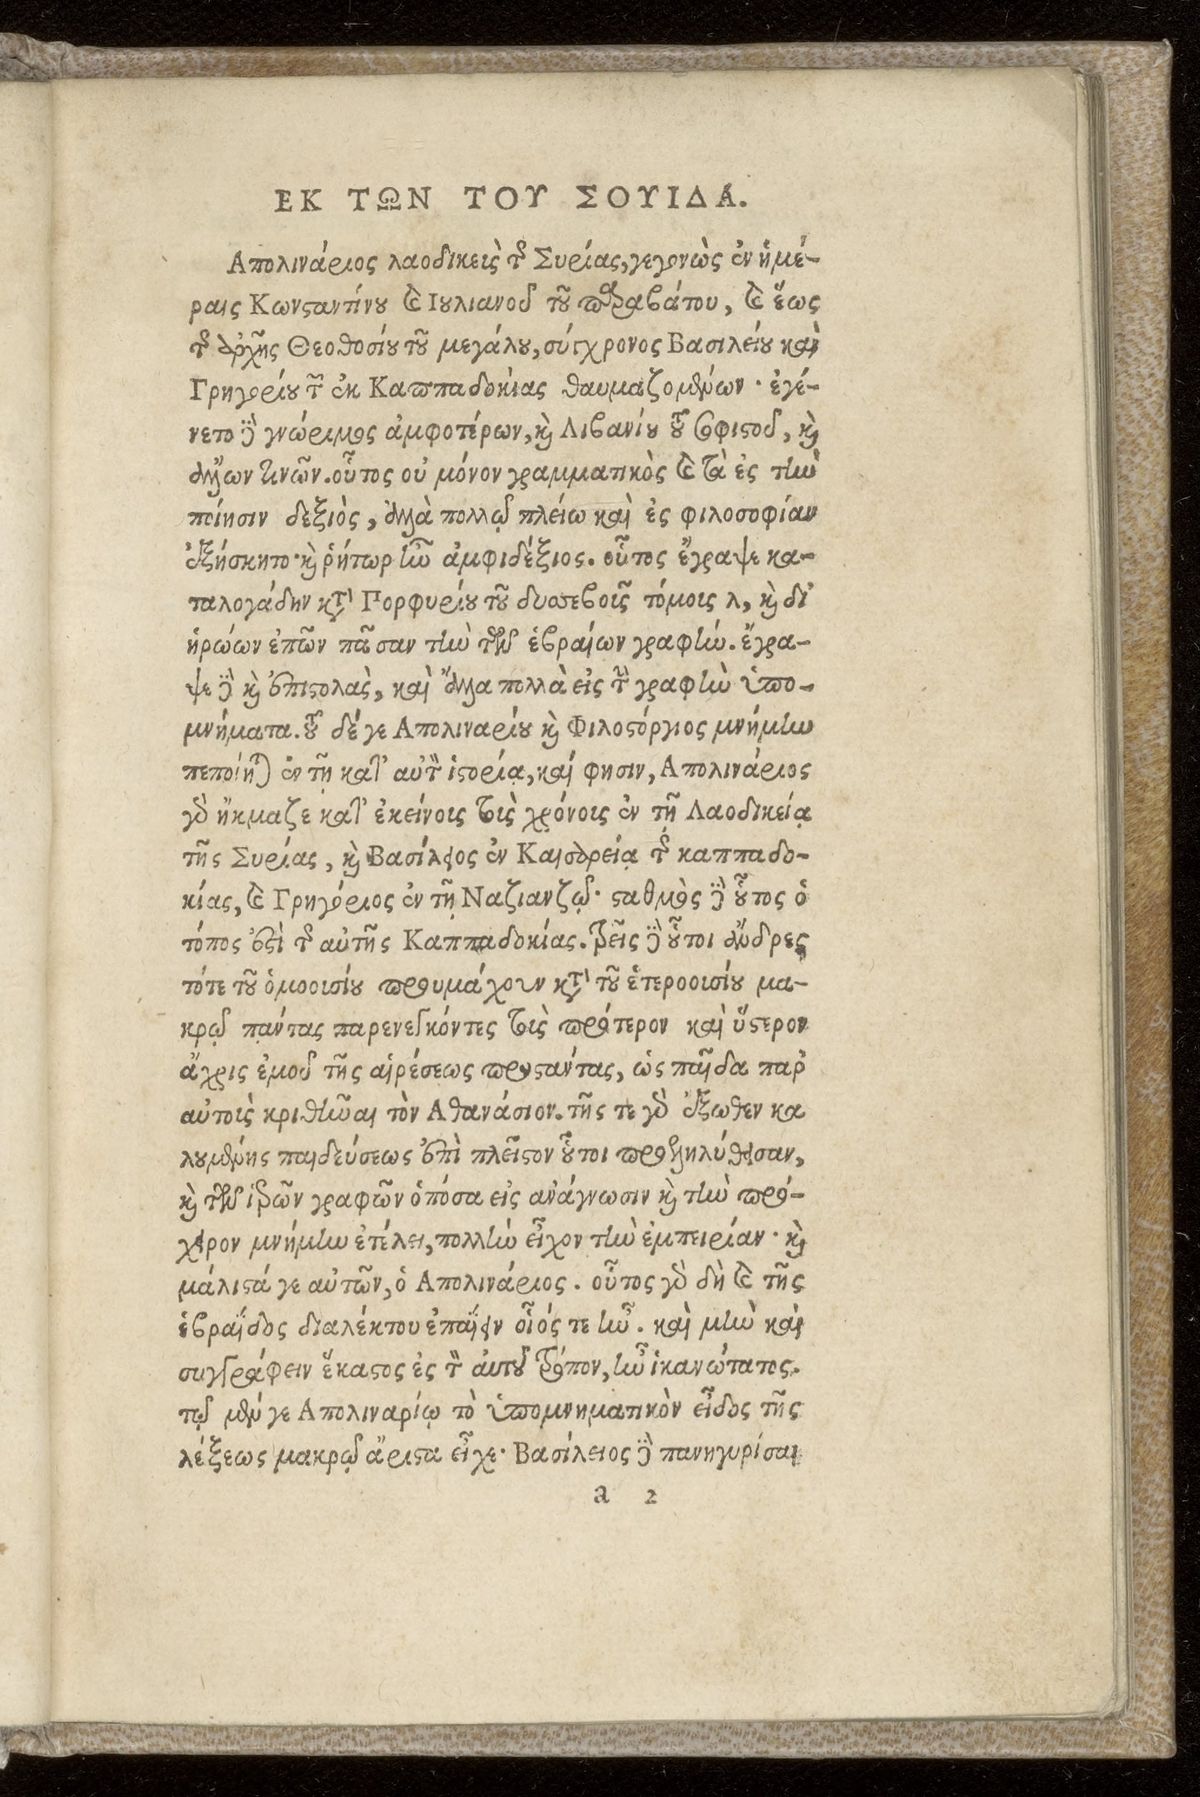 ΕΚ ΤΩΝ ΤΟΥ ΣΟΥΙΔΑ.
Απολινάριος λαοδικεὺς τῆς Συρίας, γεγονὼς ἐν ἡμέ-
ραις Κωνσαντίνου καὶ Ιουλιανοῦ τοῦ παραβάτου, καὶ ἕως
τῆς ἀρχῆς Θεοδοσίου τοῦ μεγάλου, σύγχρονος Βασιλείου καὶ
Γρηγορίου τῶν ἐκ Καππαδοκίας θαυμαζομένων · ἐγέ-
νετο δὲ γνώριμος ἀμφοτέρων, καὶ Λιβανίου τοῦ σοφιστοῦ, καὶ
ἄλλων τινῶν. οὗτος οὐ μόνον γραμματικὸς καὶ τὰ ἐς τὴν
ποίησιν δεξιὸς, ἀλλὰ πολλῷ πλείω καὶ ἐς φιλοσοφίαν
ἐξήσκητο · καὶ ῥήτωρ ἦν ἀμφιδέξιος. οὗτος ἔγραψε κα-
ταλογάδην κατὰ Πορφυρίου τοῦ δυσσεβοῦς τόμοις λ, καὶ δι'
ἡρώων ἐπῶν πᾶσαν τὴν τῶν ἑβραίων γραφήν. ἔγρα-
ψε δὲ καὶ ἐπιστολὰς, καὶ ἄλλα πολλὰ εἰς τὴν γραφὴν ὑπο-
μνήματα. τούτου δέ γε Απολιναρίου καὶ Φιλοστόργιος μνήμην
πεποίηται ἐν τῇ κατ' αὐτὸν ἱστορίᾳ, καί φησιν, Απολινάριος
γὰρ ἤκμαζε κατ' ἐκείνοις τοὺς χρόνοις ἐν τῇ Λαοδικείᾳ
τῆς Συρίας, καὶ Βασίλειος ἐν Καισαρείᾳ τῆς καππαδο-
κίας, καὶ Γρηγόριος ἐν τῇ Ναζιανζῷ · σταθμὸς δὲ οὗτος ὁ
τόπος ἐστὶ τῆς αὐτῆς Καππαδοκίας. τρεῖς δὲ οὗτοι ἄνδρες
τότε τοῦ ὁμοουσίου προυμάχουν κατὰ τοῦ ἑτεροουσίου μα-
κρῷ πάντας παρενεγκόντες τοὺς πρότερον καὶ ὕστερον
ἄχρις ἐμοῦ τῆς αἱρέσεως προστάντας, ὡς παῖδα παρ'
αὐτοῖς κριθῆναι τὸν Αθανάσιον. τῆς τε γὰρ ἔξωθεν κα
λουμένης παιδεύσεως ἐπὶ πλεῖστον οὗτοι προεληλύθεσαν,
καὶ τῶν ἱερῶν γραφῶν ὁπόσα εἰς ἀνάγνωσιν καὶ τὴν πρό-
χειρον μνήμην ἐτέλει, πολλὴν εἶχον τὴν ἐμπειρίαν · καὶ
μάλιστά γε αὐτῶν, ὁ Απολινάριος. οὗτος γὰρ δὴ καὶ τῆς
ἑβραΐδος διαλέκτου ἐπαΐειν οἷός τε ἦν. καὶ μὴν καὶ
συγγράφειν ἕκαστος ἐς τὸν αὐτοῦ τρόπον, ἦν ἱκανώτατος.
τῷ μέν γε Απολιναρίῳ τὸ ὑπομνηματικὸν εἶδος τῆς
λέξεως μακρῷ ἄριστα εἶχε · Βασίλειος δὲ πανηγυρίσαι
a 2